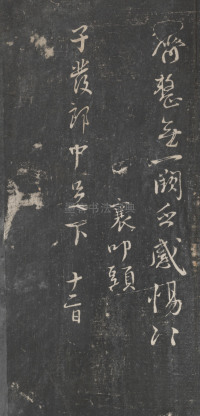 齊整無一闕乏感惕
襄叩頭
子發郎中足下 十二日